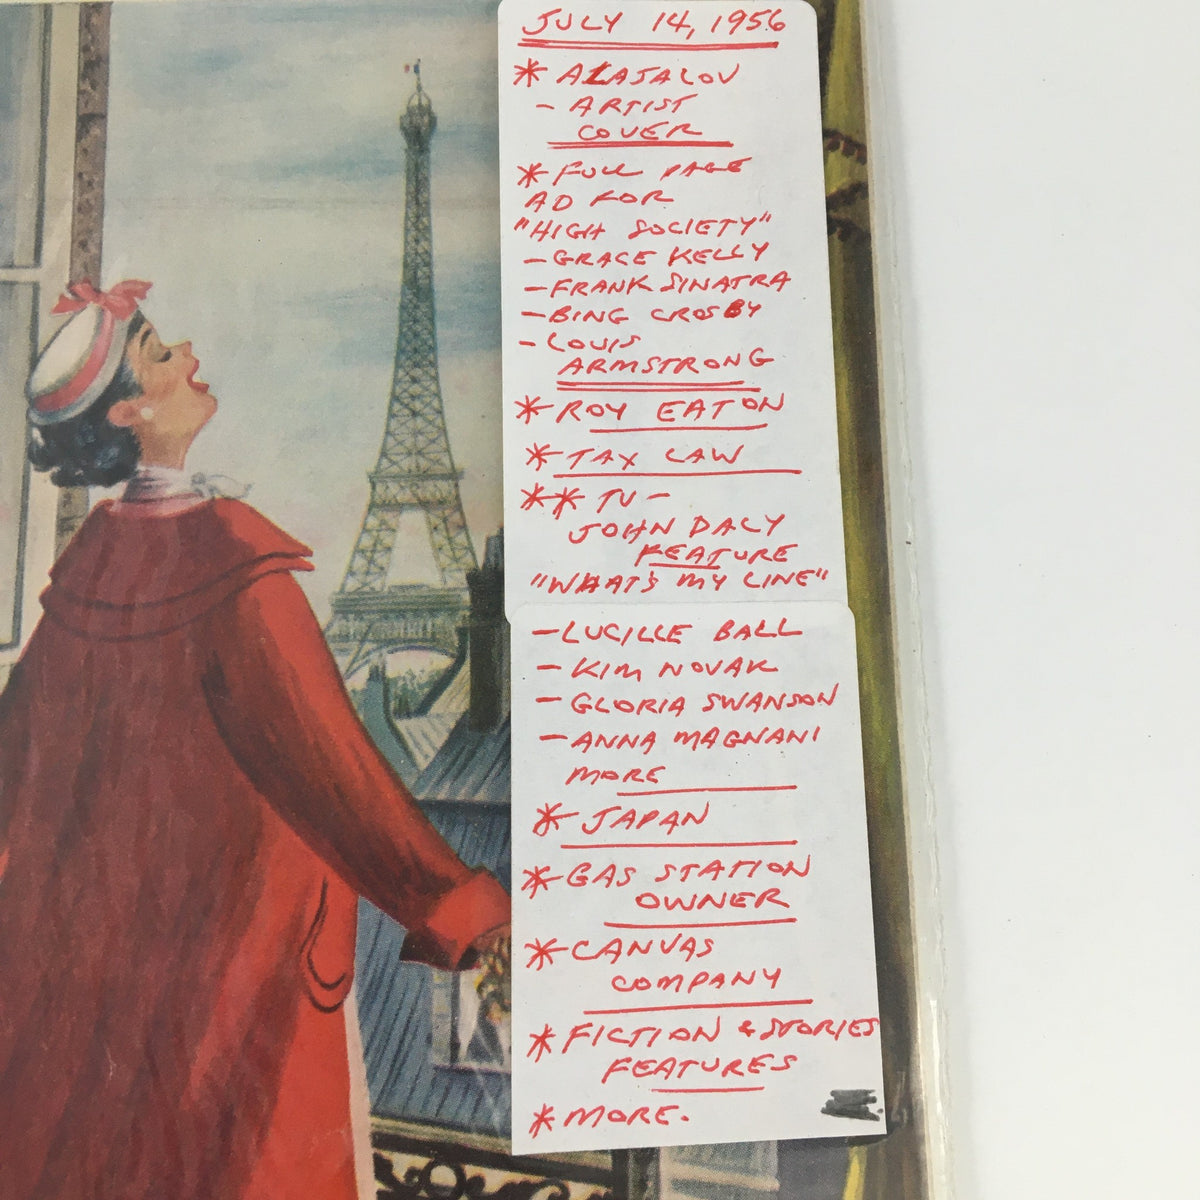 JULY 14, 1956
* ALAJALOV
- ARTIST
COVER
* FULL PAGE
AD FOR
"HIGH SOCIETY"
- GRACE KELLY
- FRANK SINATRA
- BING CROSBY
- LOUIS
ARMSTRONG
* ROY EATON
* TAX LAW
** TV -
JOHN DALY
FEATURE
"WHAT'S MY LINE"
- LUCILLE BALL
- KIM NOVAK
- GLORIA SWANSON
- ANNA MAGNANI
MORE
* JAPAN
* GAS STATION
OWNER
* CANVAS
COMPANY
* FICTION & STORIES
FEATURES
* MORE.